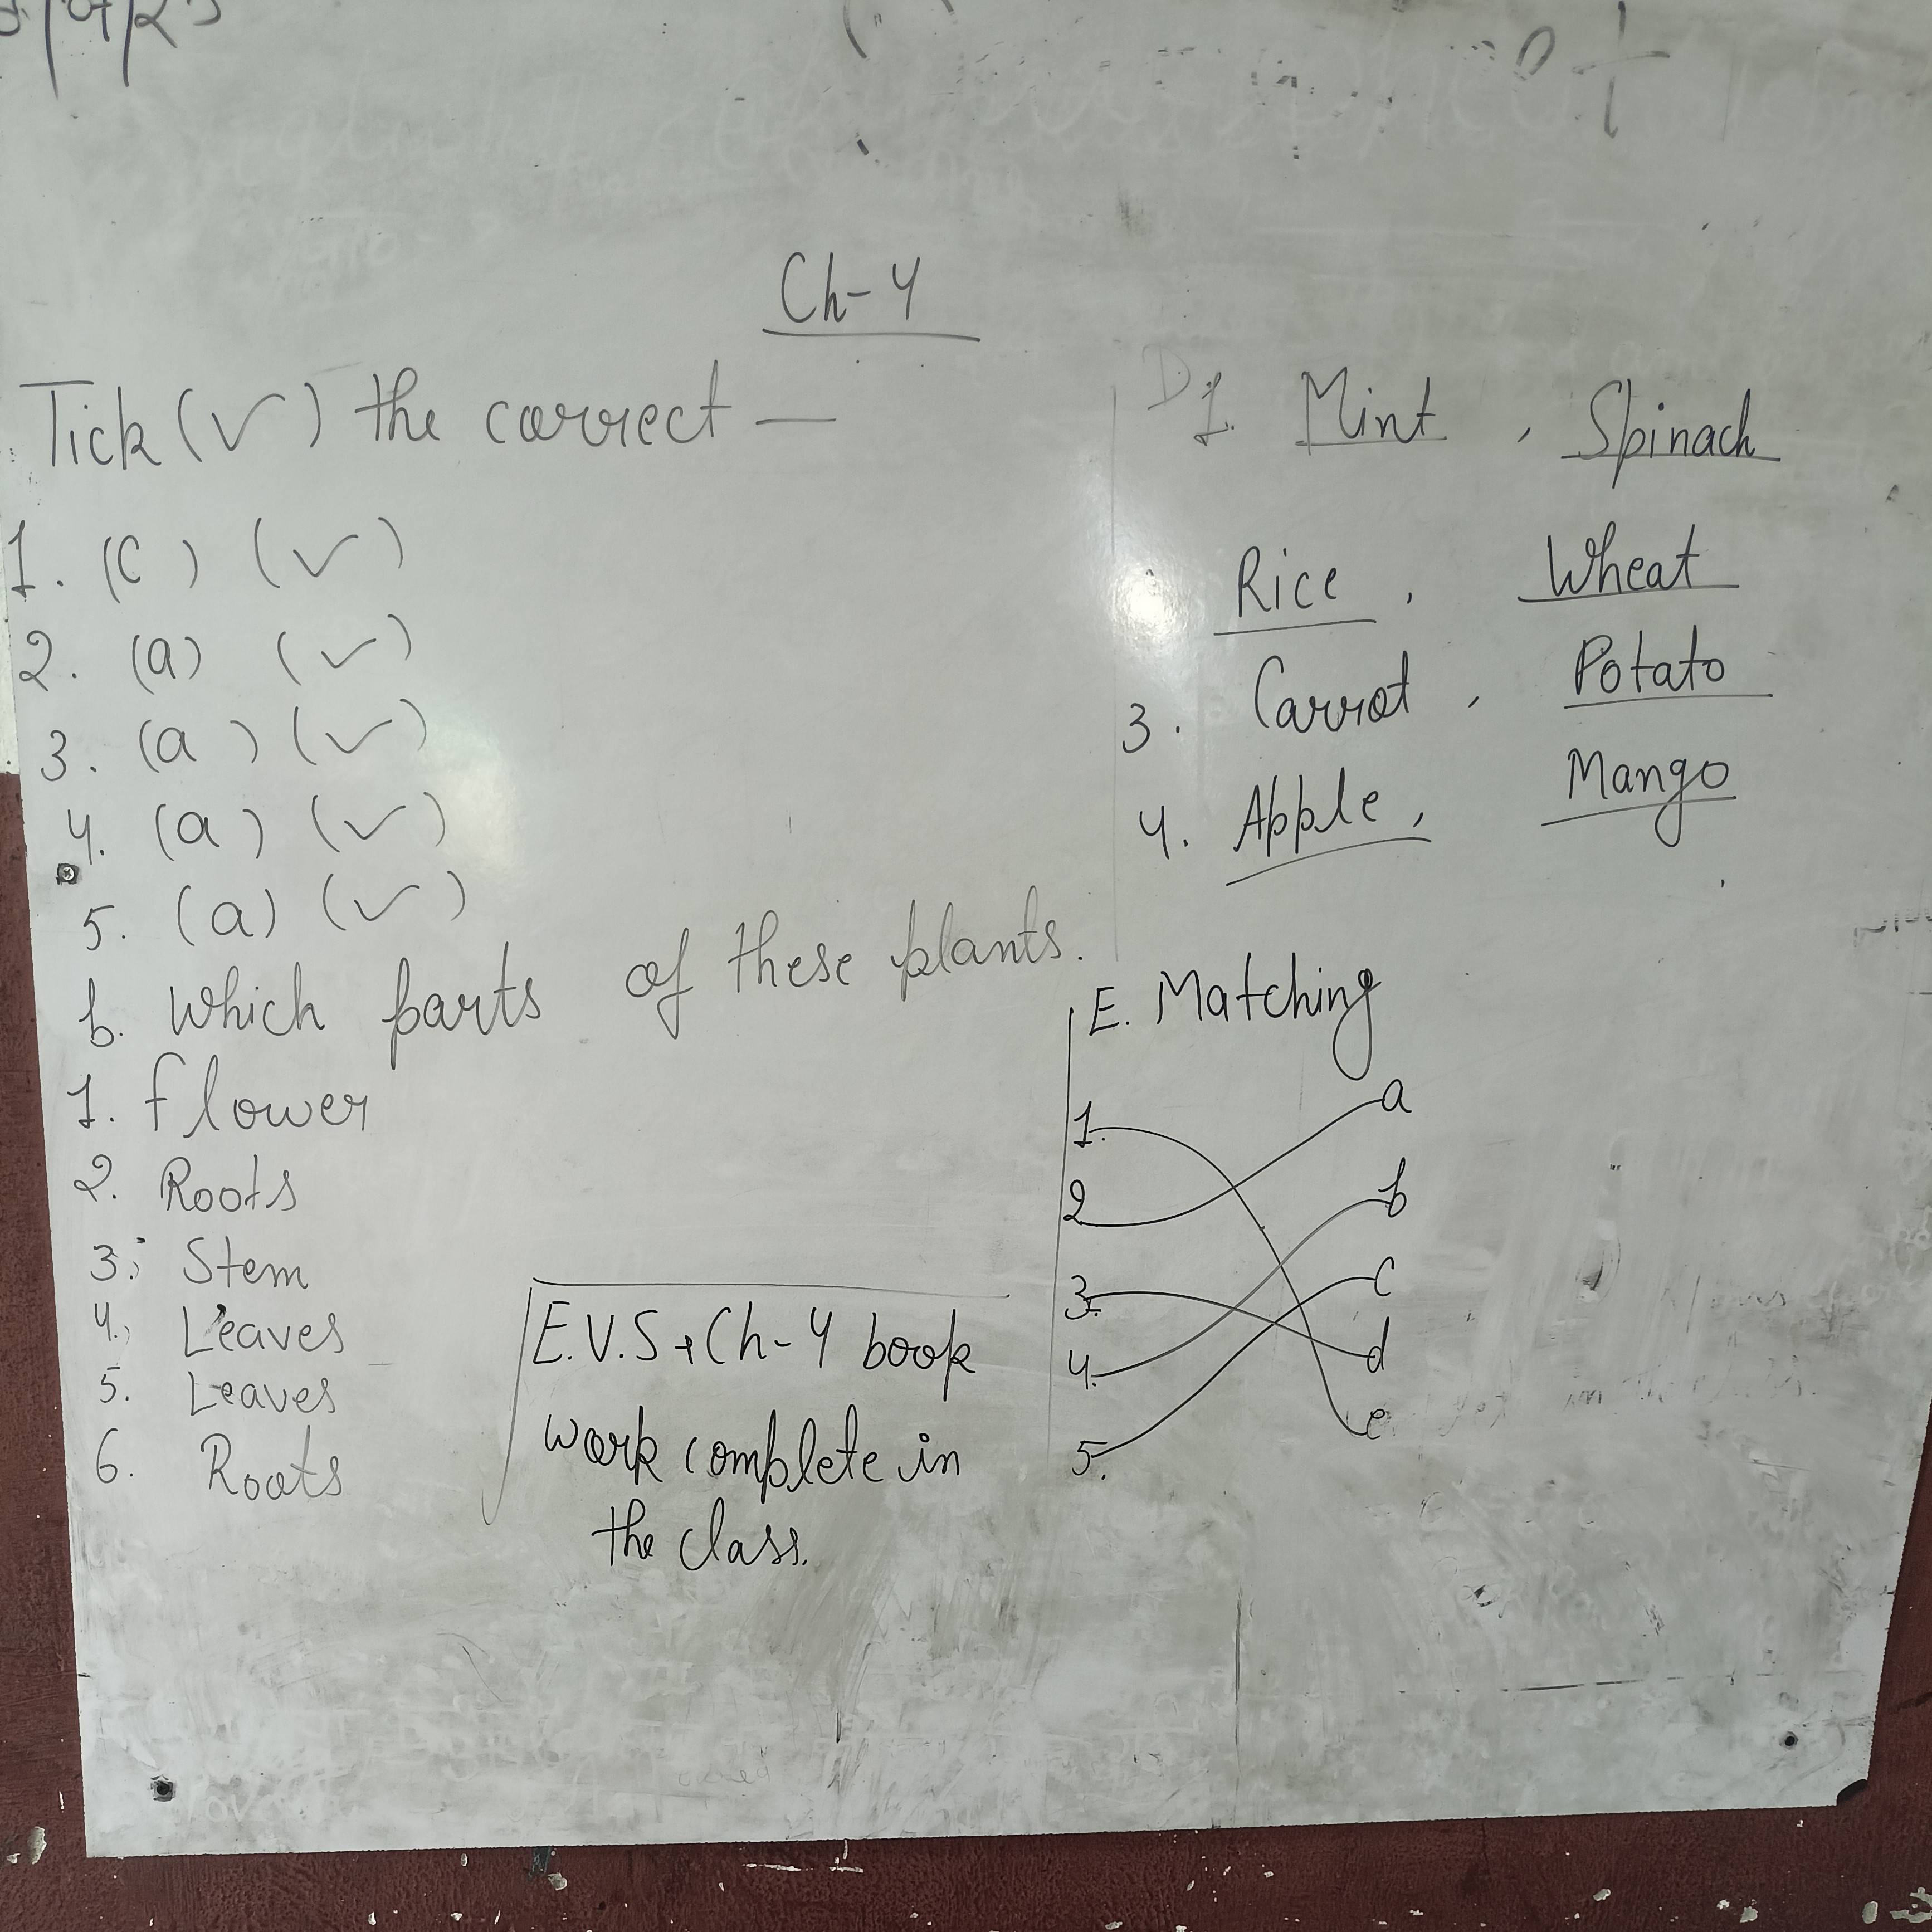 Ch-4
Tick (✓) the correct —
1. (c) (✓)
2. (a) (✓)
3. (a) (✓)
4. (a) (✓)
5. (a) (✓)
b. Which parts of these plants.
1. flower
2. Roots
3. Stem
4. Leaves
5. Leaves
6. Roots
E.V.S + Ch-4 book
work complete in
the class.
D 1. Mint , Spinach
Rice , Wheat
3. Carrot , Potato
4. Apple , Mango
E. Matching
1. a
2 b
3. c
4. d
5. e